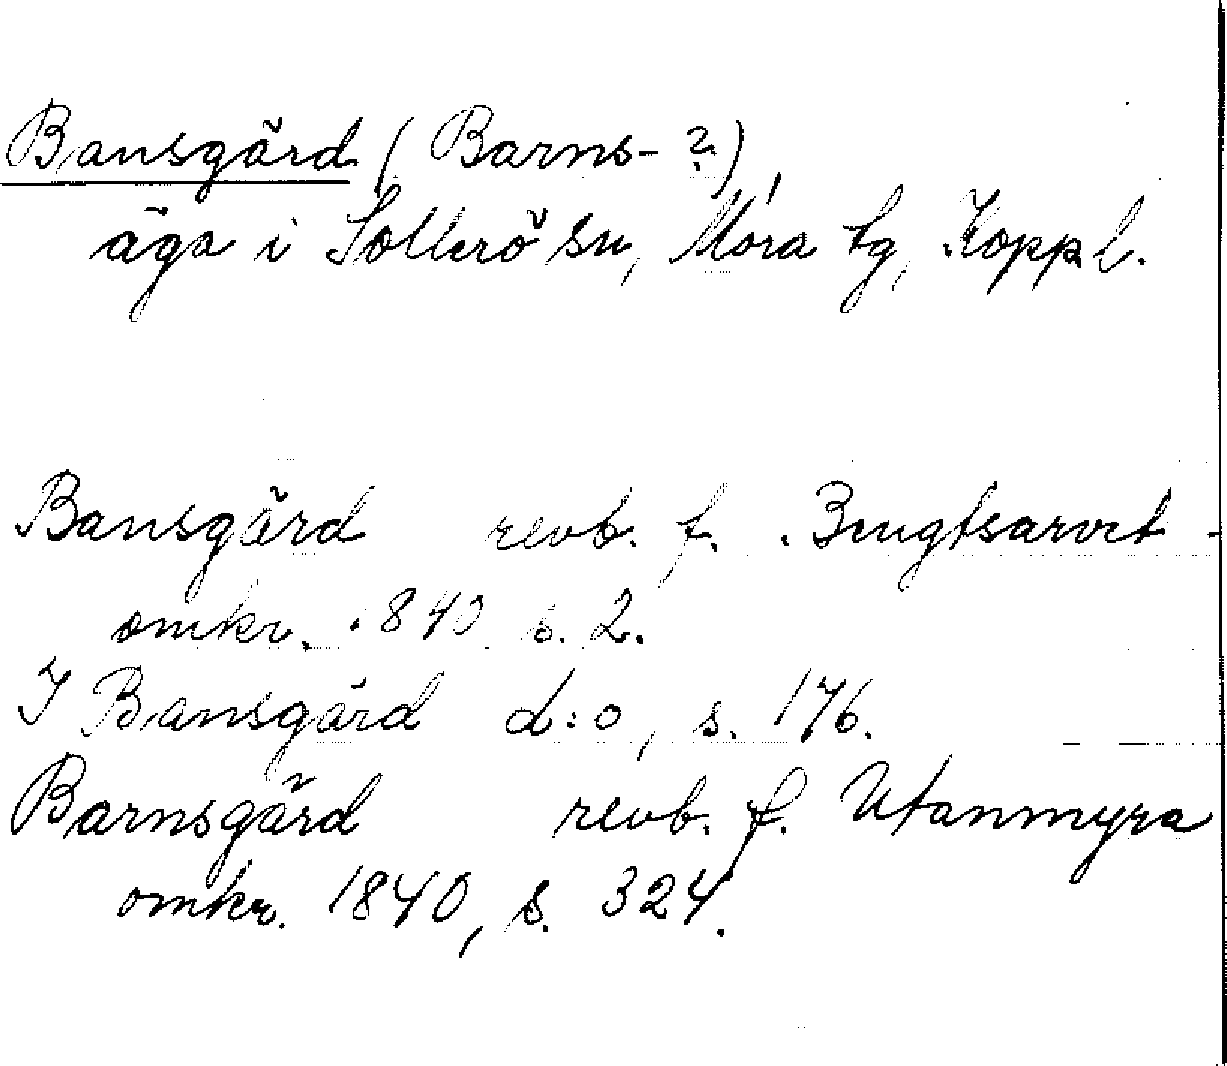 Bansgärd (Barns- ?)
äga i Sollerö sn, Mora tg, Koppl.
Bansgärd revb. f. Bengtsarvet
omkr. 1840 s. 2.
I Bansgärd d:o, s. 176.
Barnsgärd revb. f. Utanmyra
omkr. 1840, s. 324.